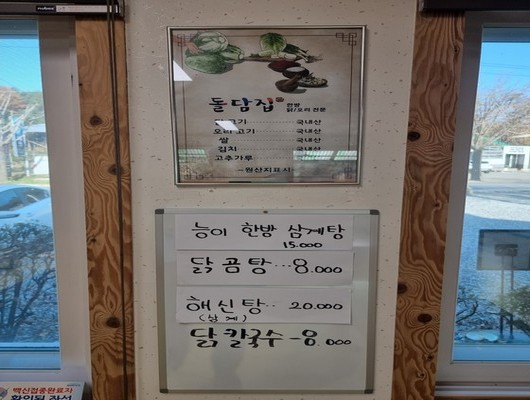 돌담집 한방
닭/오리 전문
고기 국내산
오리고기 국내산
쌀 국내산
김치 국내산
고추가루
원산지표시
능이 한방 삼계탕
15.000
닭곰탕...8.000
해신탕.. 20.000
(삼계)
닭칼국수-8.000
백신접종완료자
확인된 좌석